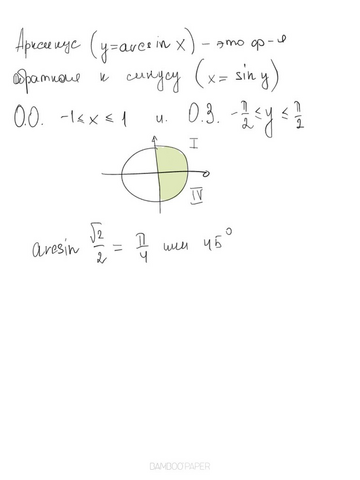 Арксинус (y=arcsin x) – это ф-я
обратная к синусу (x = sin y)
О.О. -1 ≤ x ≤ 1 и. О.З. -π/2 ≤ y ≤ π/2
I
IV
arcsin √2/2 = π/4 или 45°
BAMBOO PAPER